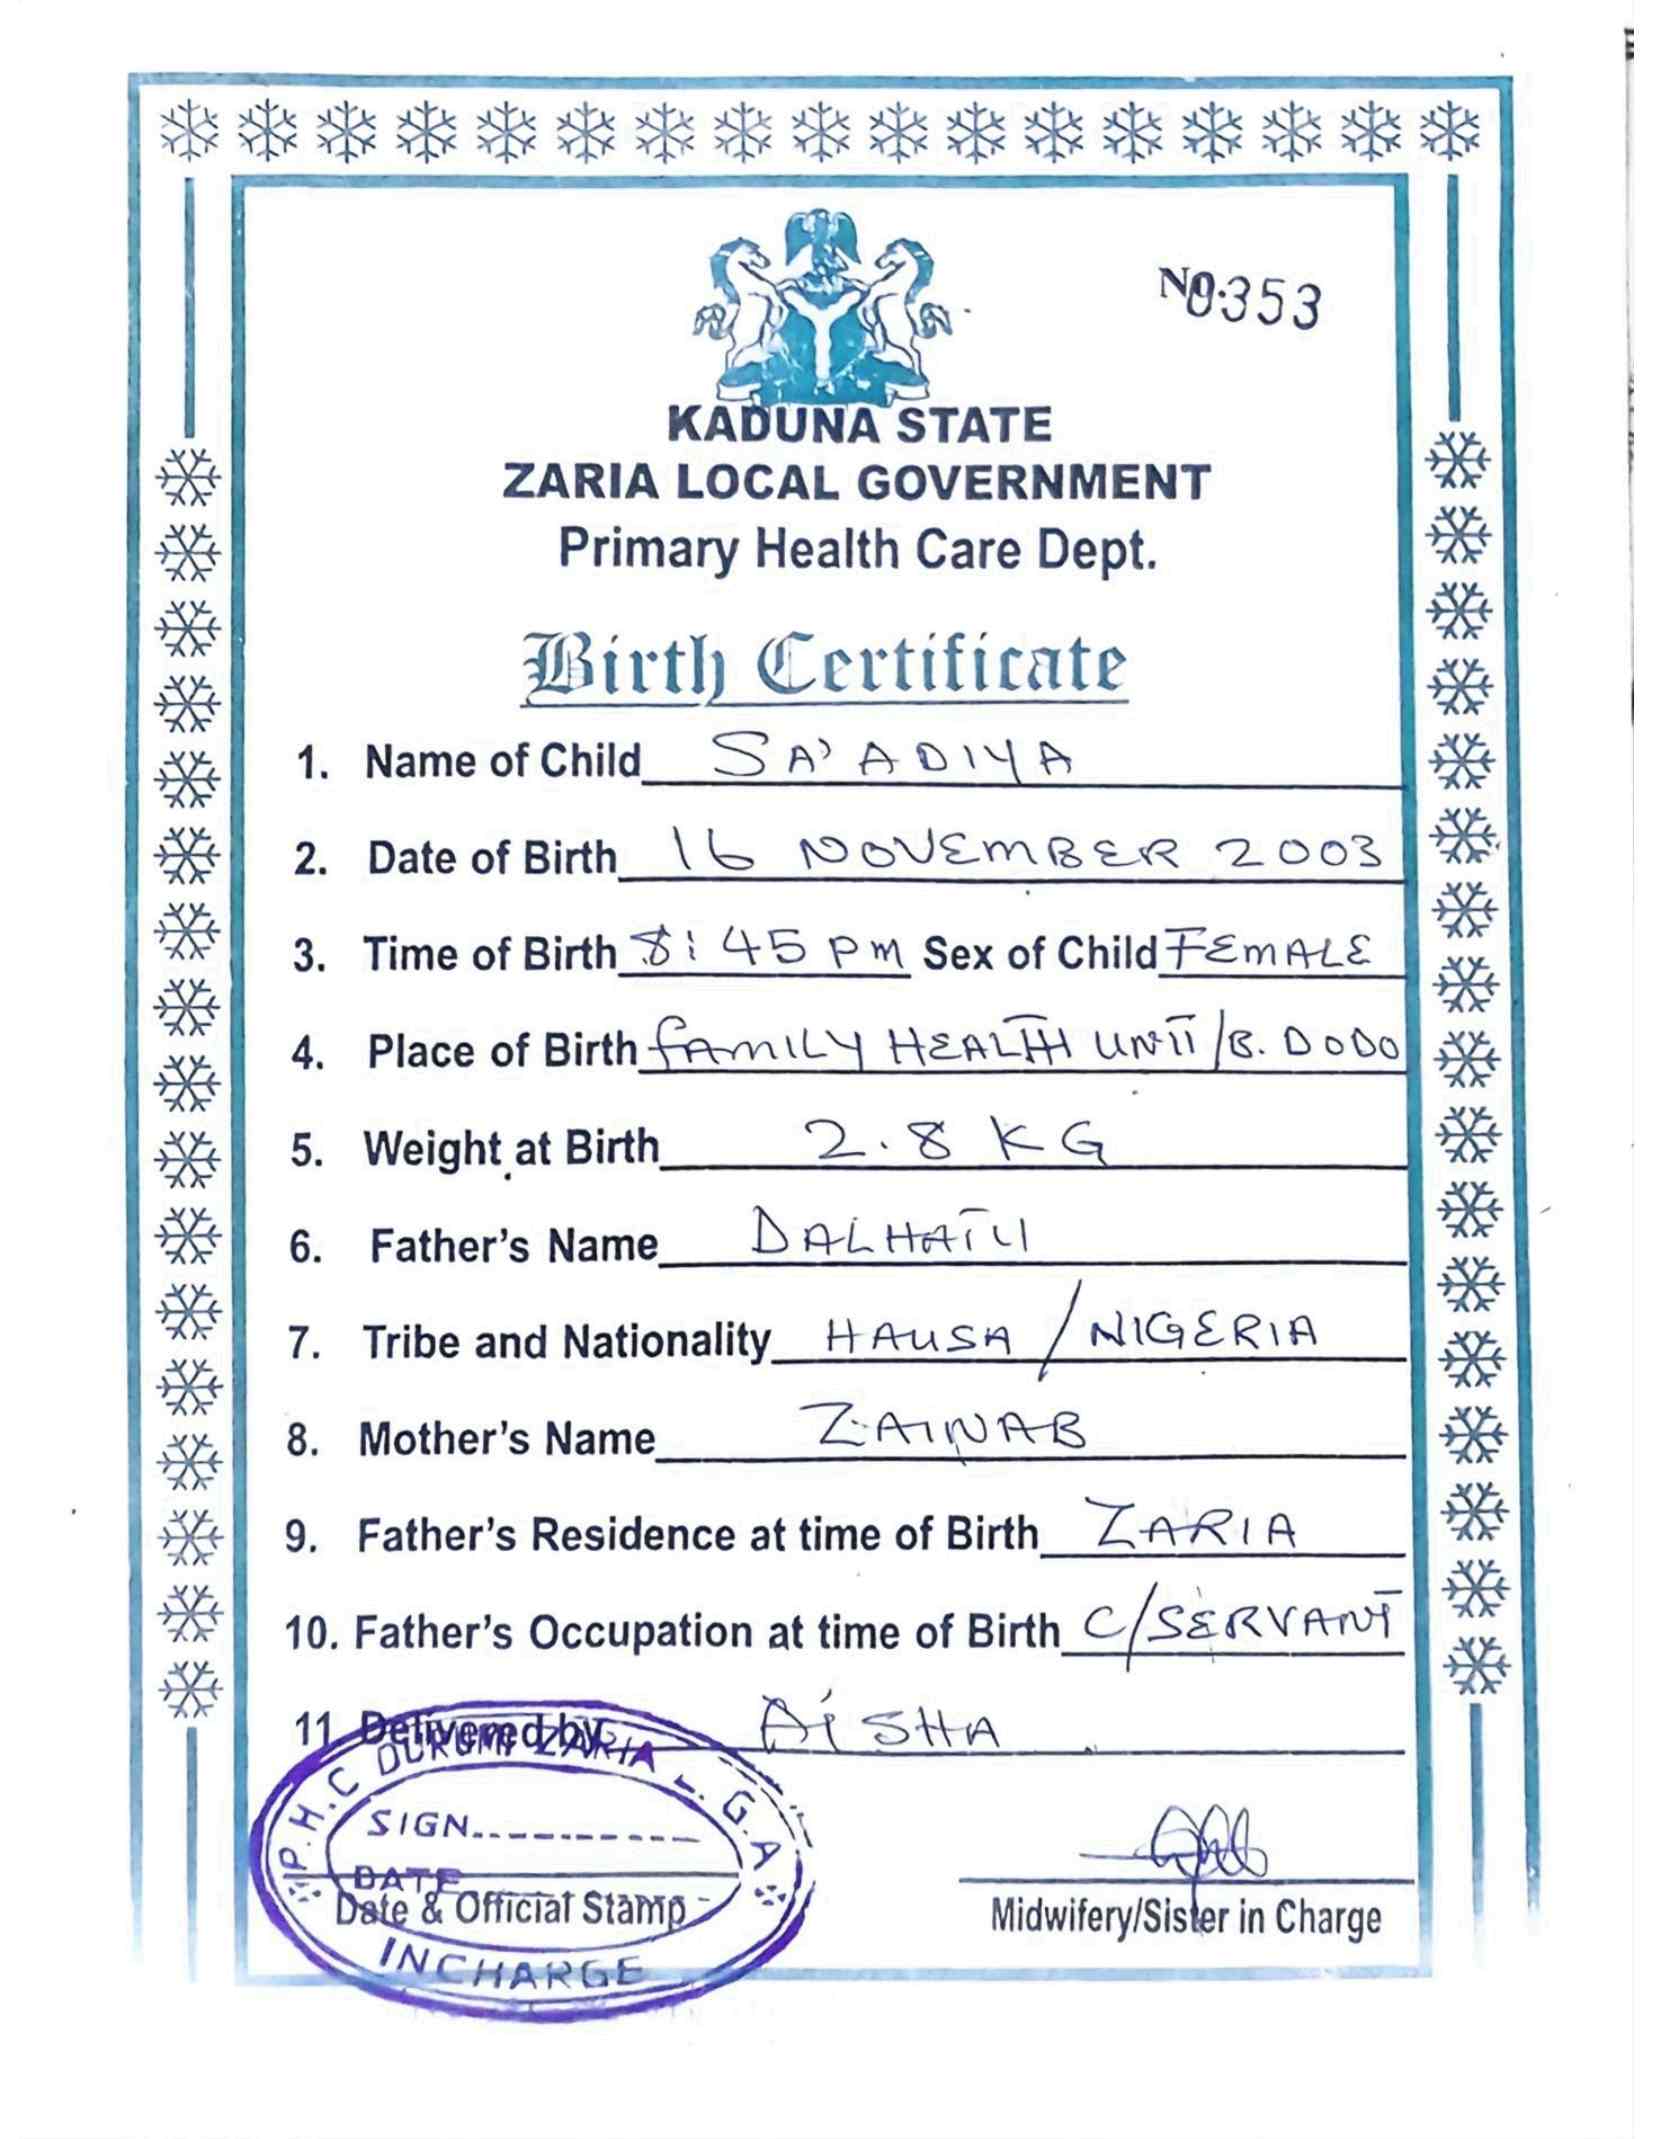 No.353
KADUNA STATE
ZARIA LOCAL GOVERNMENT
Primary Health Care Dept.
Birth Certificate
1. Name of Child SA'ADIYA
2. Date of Birth 16 NOVEMBER 2003
3. Time of Birth 8:45 pm Sex of Child FEMALE
4. Place of Birth FAMILY HEALTH UNIT/B. DODO
5. Weight at Birth 2.8 KG
6. Father's Name DALHATU
7. Tribe and Nationality HAUSA/NIGERIA
8. Mother's Name ZAINAB
9. Father's Residence at time of Birth ZARIA
10. Father's Occupation at time of Birth C/SERVANT
11. Delivered by AISHA
P.H.C DURUMI ZARIA L.G.A
SIGN
DATE
Date & Official Stamp
INCHARGE
Midwifery/Sister in Charge